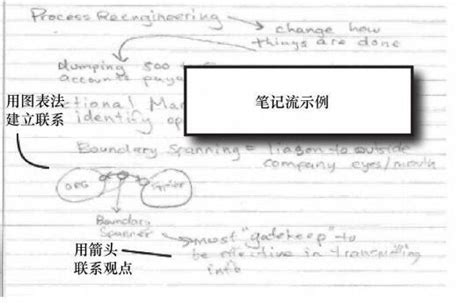 Process Reengineering
change how
things are done
dumping 500
accounts
ctional Ma
identify op
笔记流示例
用图表法
建立联系
Boundary Spanning = liason to outside
company eyes/mouth
ORG
Boundary
Spanner
must "gatekeep" to
be effective in
info
用箭头
联系观点